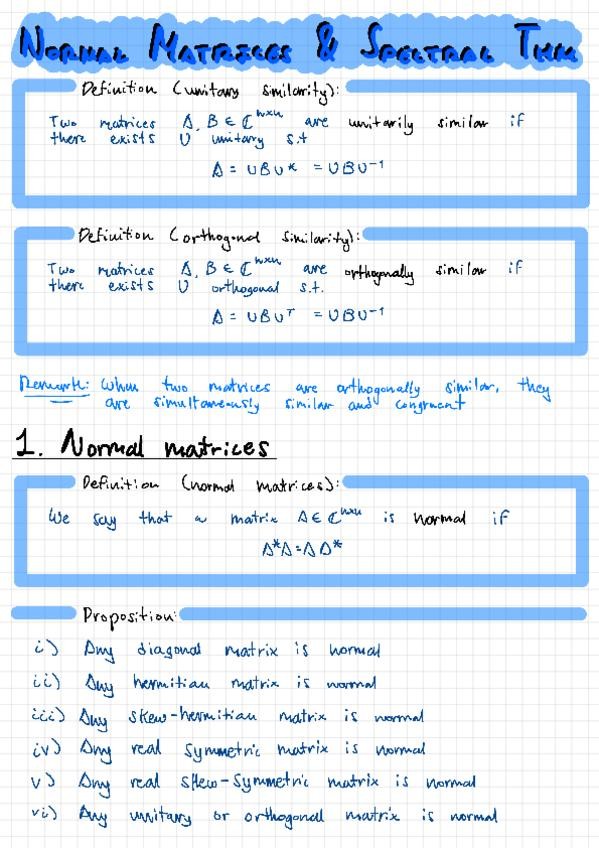 NORMAL MATRICES & SPECTRAL THM
Definition (unitary similarity):
Two matrices A, B ∈ ℂⁿˣⁿ are unitarily similar if
there exists U unitary s.t
A = UBU* = UBU⁻¹
Definition (orthogonal similarity):
Two matrices A, B ∈ ℂⁿˣⁿ are orthogonally similar if
there exists U orthogonal s.t.
A = UBUᵀ = UBU⁻¹
Remark: When two matrices are orthogonally similar, they
are simultaneously similar and congruent
1. Normal matrices
Definition (normal matrices):
We say that a matrix A ∈ ℂⁿˣⁿ is normal if
A*A = AA*
Proposition:
i) Any diagonal matrix is normal
ii) Any hermitian matrix is normal
iii) Any skew-hermitian matrix is normal
iv) Any real symmetric matrix is normal
v) Any real skew-symmetric matrix is normal
vi) Any unitary or orthogonal matrix is normal